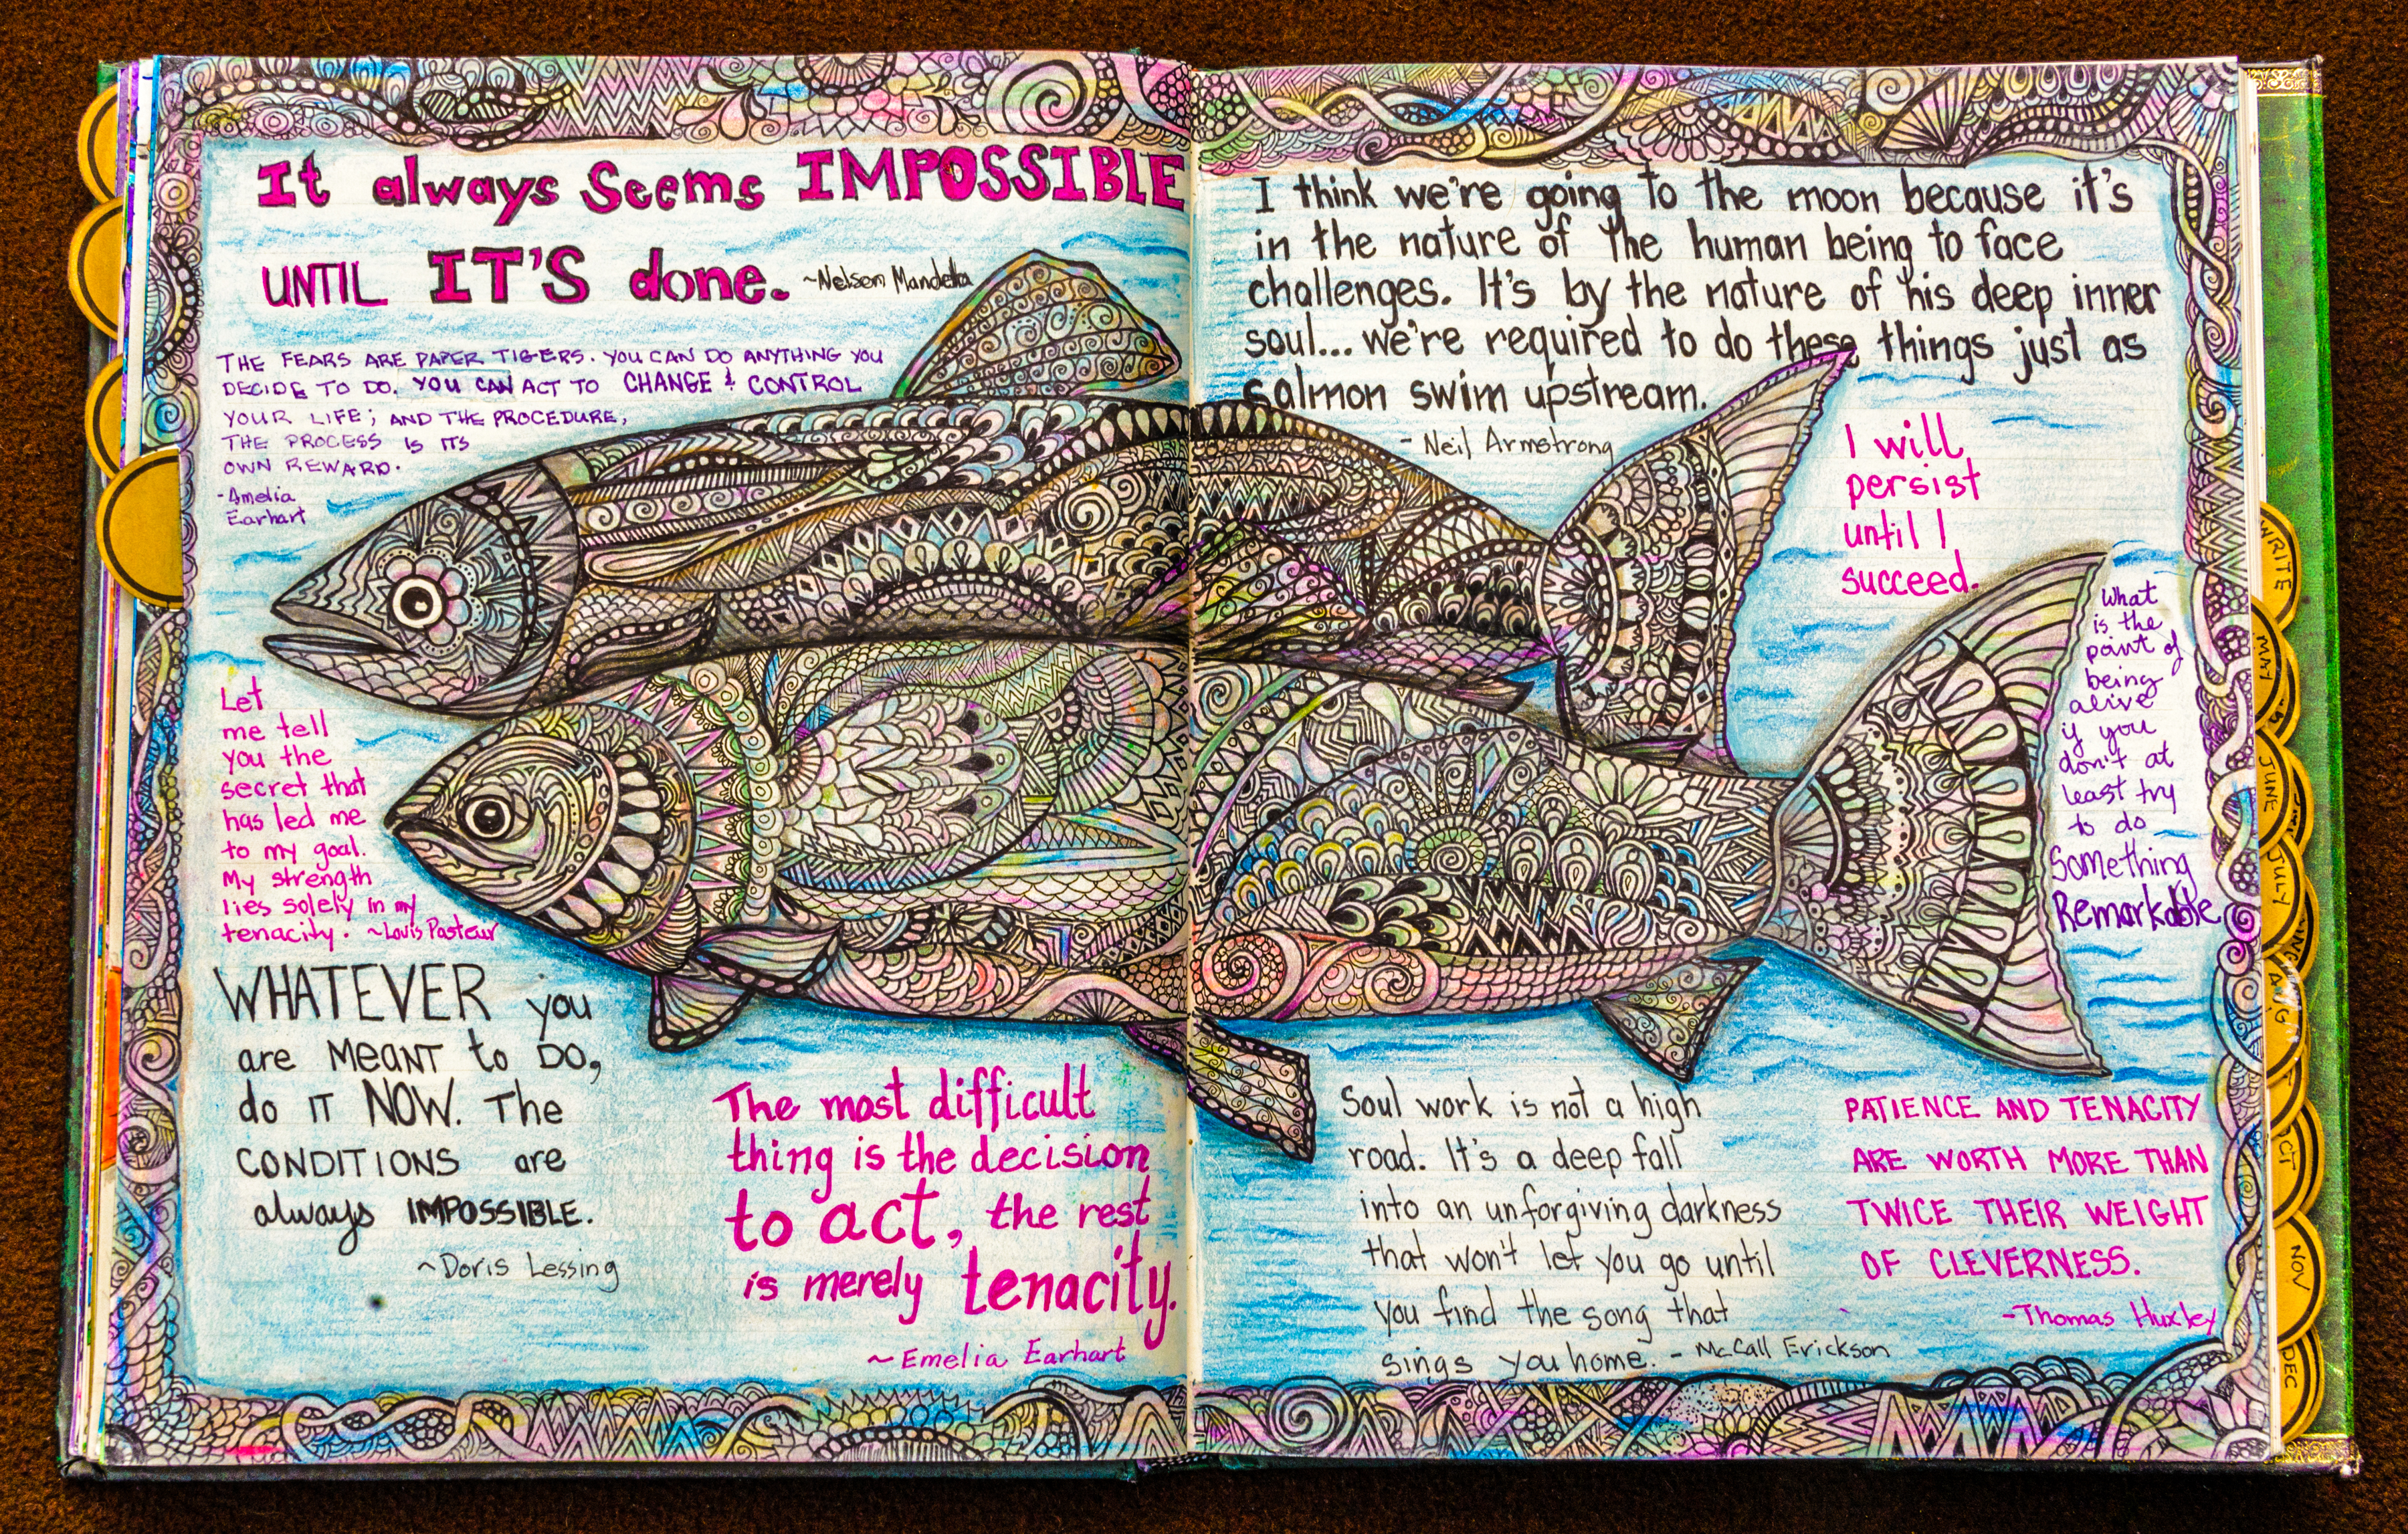 It always Seems IMPOSSIBLE
UNTIL IT'S done. ~Nelson Mandella
THE FEARS ARE PAPER TIGERS. YOU CAN DO ANYTHING YOU
DECIDE TO DO. YOU CAN ACT TO CHANGE & CONTROL
YOUR LIFE; AND THE PROCEDURE,
THE PROCESS IS ITS
OWN REWARD.
-Amelia
Earhart
Let
me tell
you the
secret that
has led me
to my goal.
My strength
lies solely in my
tenacity. ~Louis Pasteur
WHATEVER you
are MEANT to DO,
do IT NOW. The
CONDITIONS are
always IMPOSSIBLE.
~Doris Lessing
The most difficult
thing is the decision
to act, the rest
is merely tenacity.
~Emelia Earhart
I think we're going to the moon because it's
in the nature of the human being to face
challenges. It's by the nature of his deep inner
soul... we're required to do these things just as
salmon swim upstream.
- Neil Armstrong
I will
persist
until I
succeed.
What
is the
point of
being
alive
if you
don't at
least try
to do
Something
Remarkable
Soul work is not a high
road. It's a deep fall
into an unforgiving darkness
that won't let you go until
you find the song that
sings you home. - McCall Erickson
PATIENCE AND TENACITY
ARE WORTH MORE THAN
TWICE THEIR WEIGHT
OF CLEVERNESS.
-Thomas Huxley
WRITE
MAY
JUNE
JULY
AUG
CT
NOV
DEC